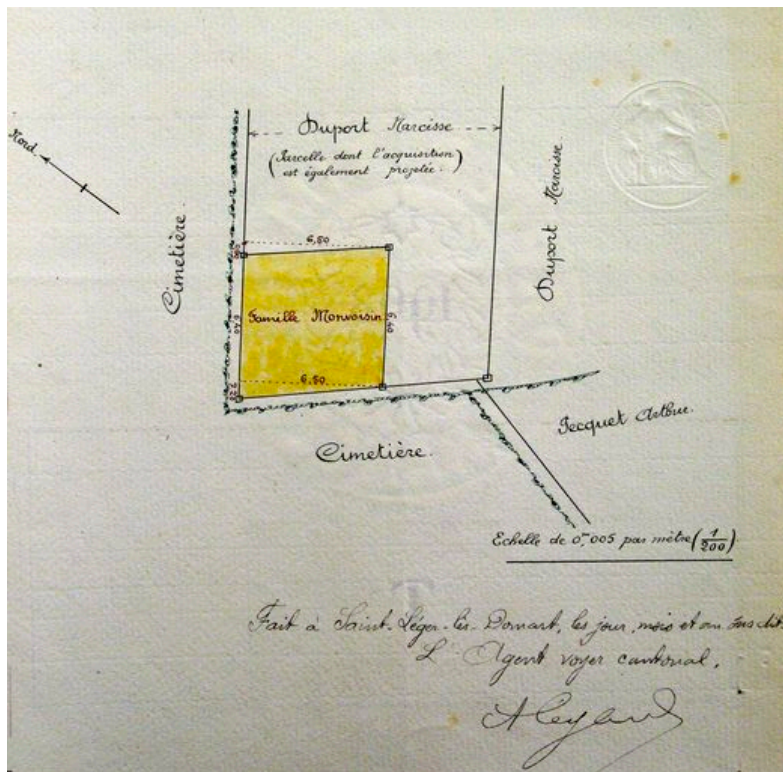 Nord.
Duport Narcisse
(Parcelle dont l'acquisition
est également projetée.)
Cimetière.
Duport Narcisse.
6,50
6,40
Famille Monvoisin
6,40
6,50
Cimetière.
Jecquet Arthur.
Echelle de 0,m005 par mètre (1/200).
Fait à Saint-Léger-lès-Domart, les jour, mois et an sus dit
L'Agent voyer cantonal,